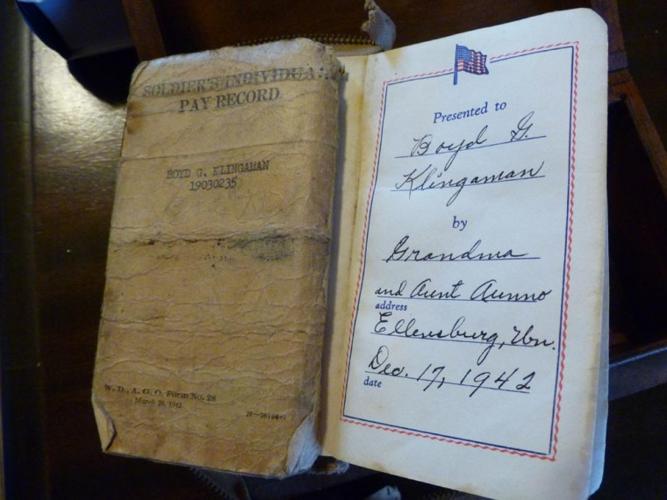 SOLDIER'S INDIVIDUAL
PAY RECORD
BOYD G. KLINGAMAN
19030235
W. D., A. G. O. Form No. 28
March 26, 1942
Presented to
Boyd G.
Klingaman
by
Grandma
and Aunt
address
Ellensburg, Wn.
Dec. 17, 1942
date